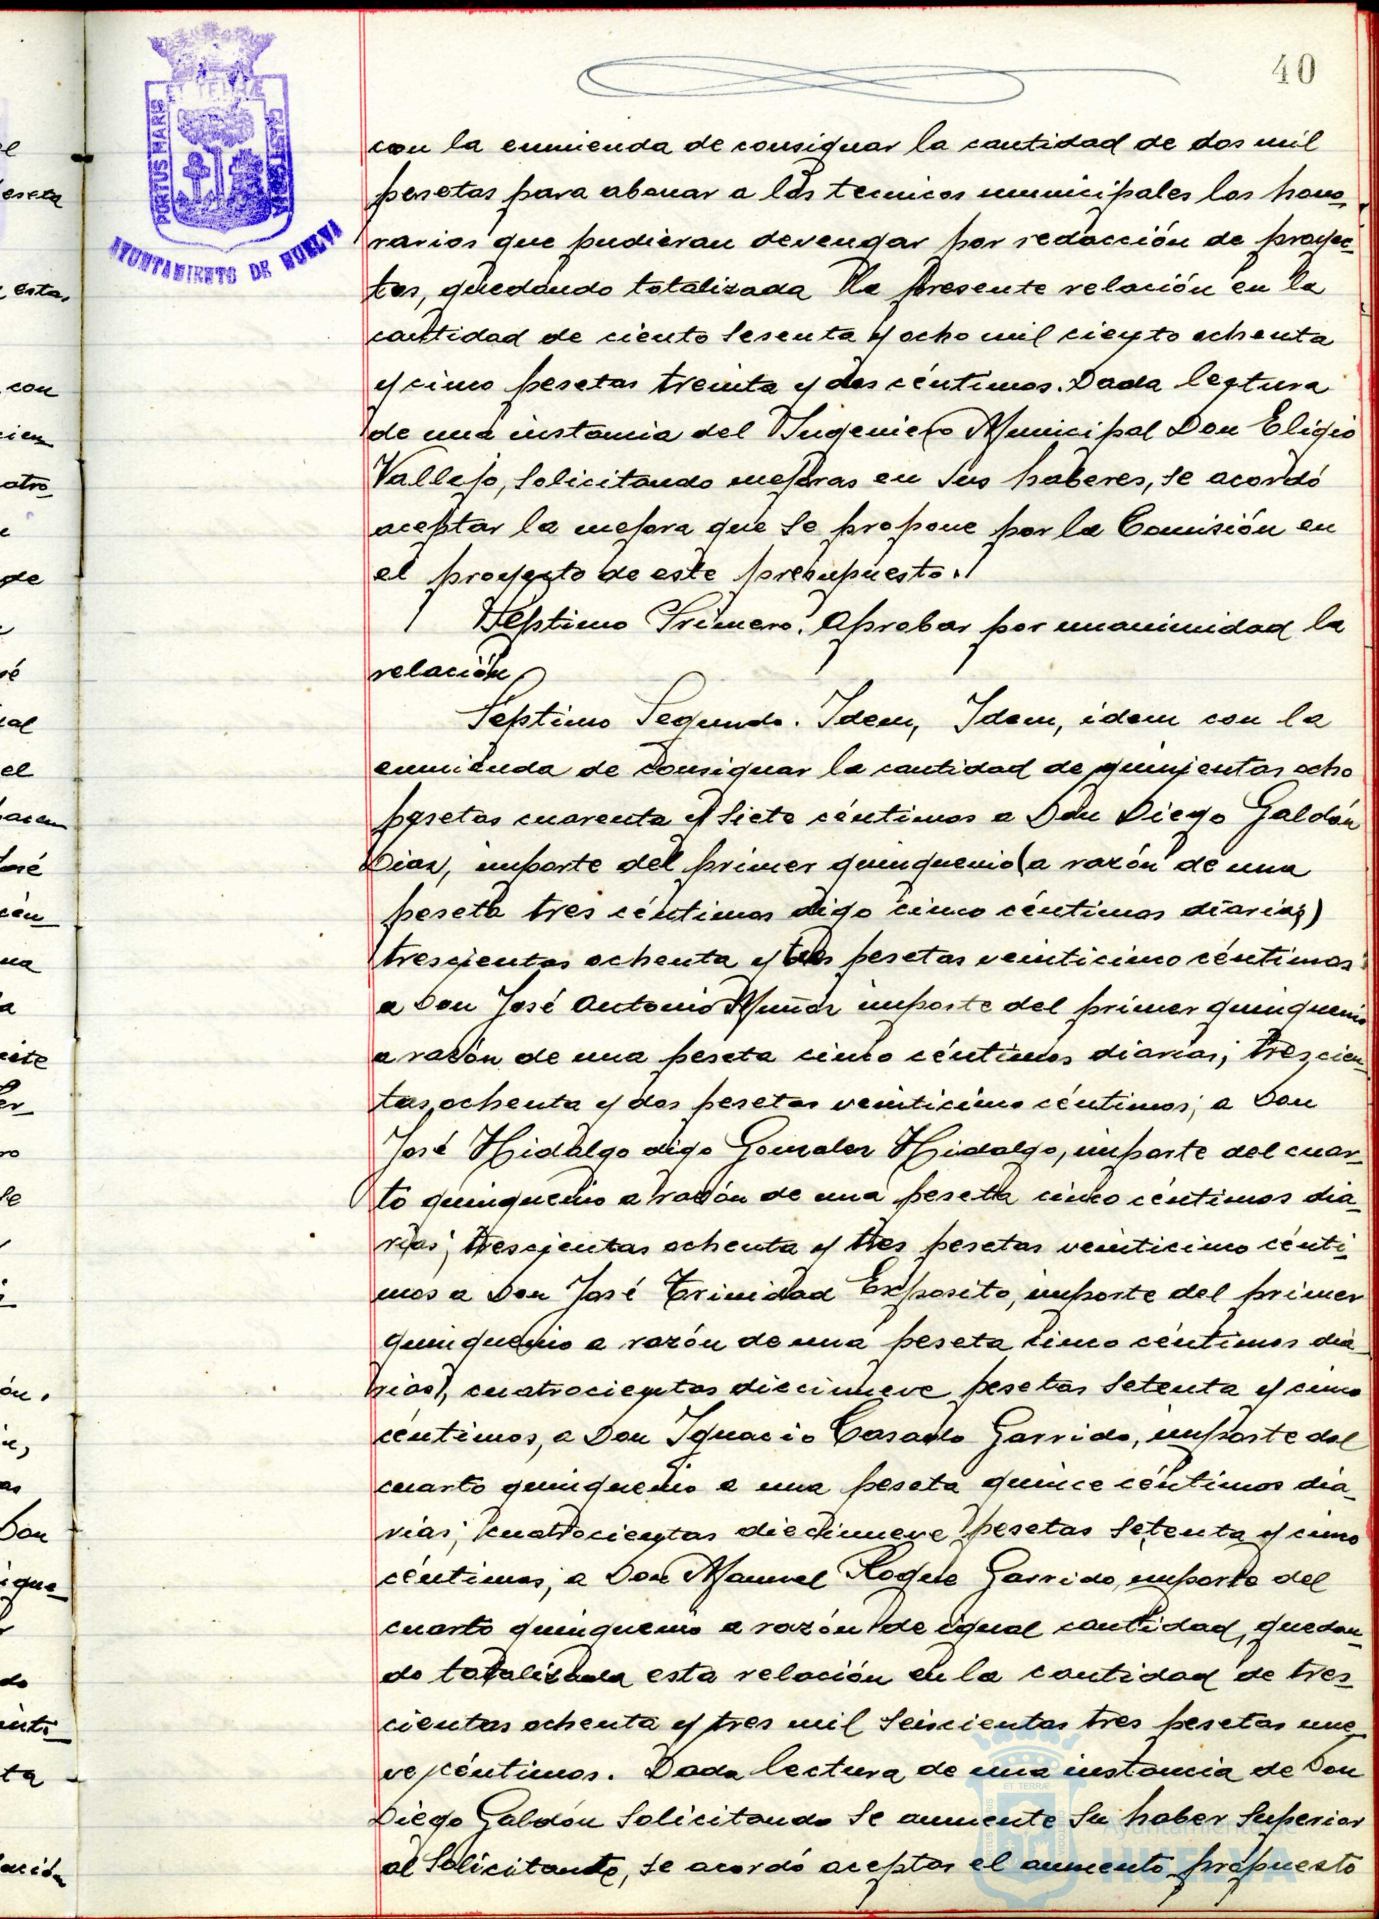 40
PORTUS MARIS
ET TERRÆ
CUSTODIA
AYUNTAMIENTO DE HUELVA
con la enmienda de consignar la cantidad de dos mil
pesetas para abonar a los tecnicos municipales los hono-
rarios que pudieran devengar por redacción de proyec-
tos, quedando totalizada la presente relación en la
cantidad de ciento sesenta y ocho mil ciento ochenta
y cinco pesetas treinta y dos céntimos. Dada lectura
de una instancia del Ingeniero Municipal Don Eligio
Vallejo, solicitando mejoras en sus haberes, se acordó
aceptar la mejora que se propone por la Comisión en
el proyecto de este presupuesto.
Septimo Primero. Aprobar por unanimidad la
relación
Séptimo Segundo. Idem, Idem, idem con la
enmienda de consignar la cantidad de quinientas ocho
pesetas cuarenta y siete céntimos a Don Diego Galdón
Dias, importe del primer quinquenio (a razón de una
peseta tres céntimos digo cinco céntimos diarias;)
trescientas ochenta y tres pesetas veinticinco céntimos
a Don José Antonio Muñoz importe del primer quinquenio
a razón de una peseta cinco céntimos diarias; trescien-
tas ochenta y dos pesetas veinticinco céntimos; a Don
José Hidalgo digo Gonzalez Hidalgo, importe del cuar-
to quinquenio a razón de una peseta cinco céntimos dia-
rias; trescientas ochenta y tres pesetas veinticinco cénti-
mos a Don José Trinidad Exposito, importe del primer
quinquenio a razón de una peseta cinco céntimos dia-
rias), cuatrocientas diecinueve pesetas setenta y cinco
céntimos, a Don Ignacio Casado Garrido, importe del
cuarto quinquenio a una peseta quince céntimos dia-
rias; cuatrocientas diecinueve pesetas setenta y cinco
céntimos, a Don Manuel Roque Garrido, importe del
cuarto quinquenio a razón de igual cantidad, quedan-
do totalizada esta relación en la cantidad de tres-
cientas ochenta y tres mil seiscientas tres pesetas nue-
ve céntimos. Dada lectura de una instancia de Don
Diego Galdón solicitando se aumente su haber superior
al solicitante, se acordó aceptar el aumento propuesto
Ayuntamiento de
HUELVA